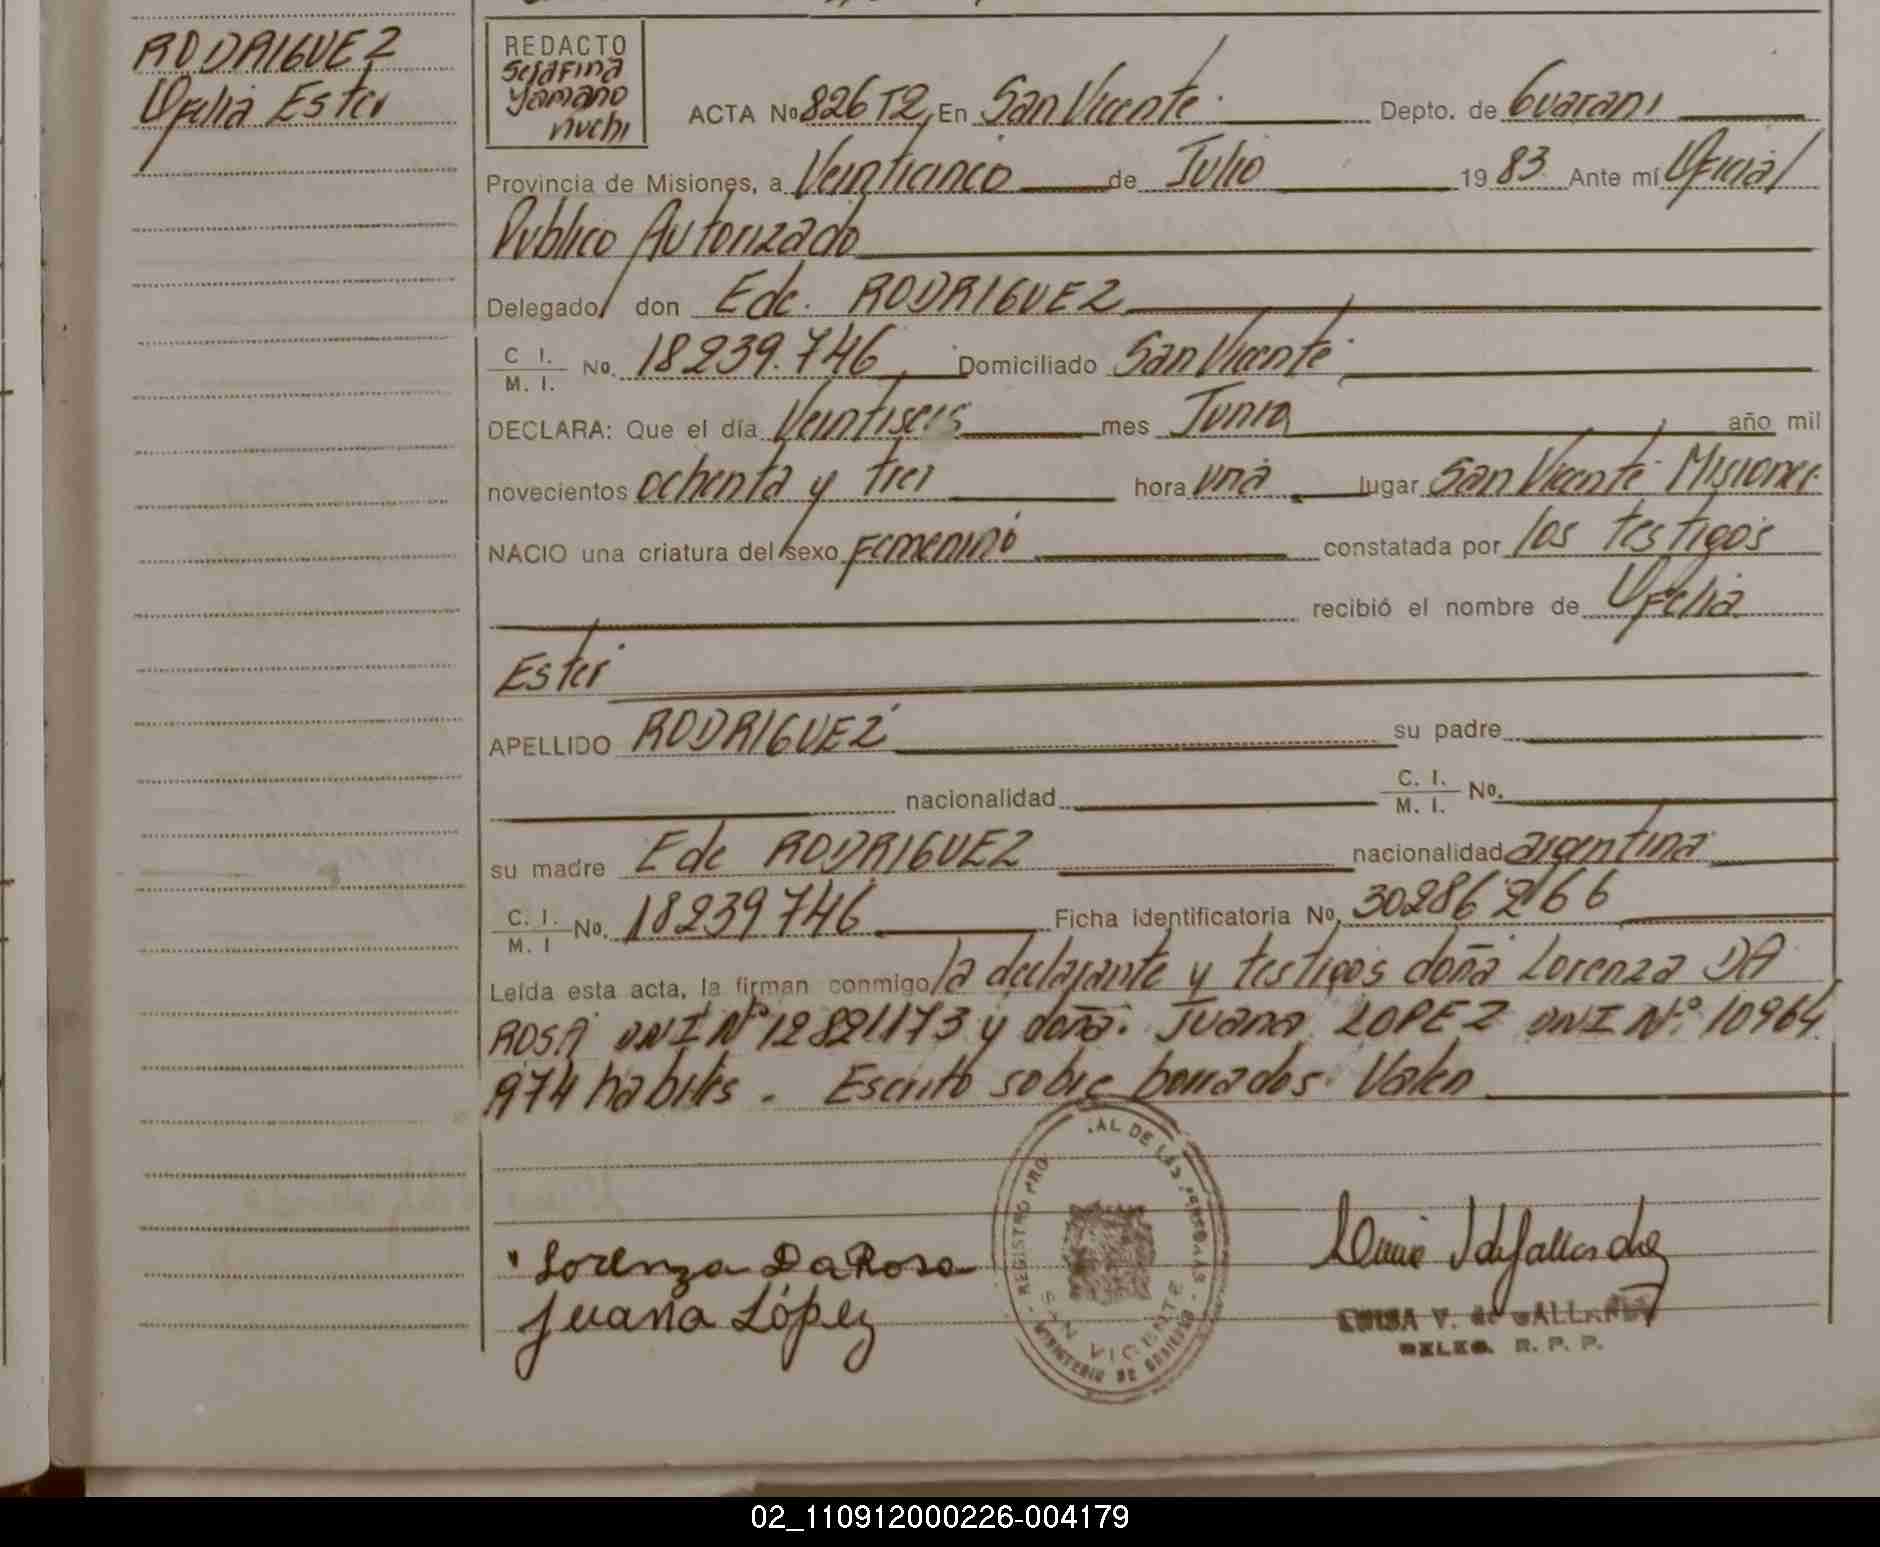 RODRIGUEZ
Ofelia Ester
REDACTO
Serafina
Yamano
nuchi
ACTA No 826 T2, En San Vicente Depto. de Guarani
Provincia de Misiones, a Veinticinco de Julio 1983 Ante mí Oficial
Publico Autorizado
Delegado don Ede. RODRIGUEZ
C I. M. I. No. 18239.746, Domiciliado San Vicente
DECLARA: Que el día Veintiseis mes Junio año mil
novecientos ochenta y tres hora una lugar San Vicente Misiones
NACIO una criatura del sexo Femenino constatada por los testigos
recibió el nombre de Ofelia
Ester
APELLIDO RODRIGUEZ su padre
nacionalidad C. I. M. I. No.
su madre Ede RODRIGUEZ nacionalidad argentina
C. I. M. I No. 18239746 Ficha identificatoria No. 302862166
Leída esta acta, la firman conmigo la declarante y testigos doña Lorenza DA
ROSA DNI Nº 12821173 y doña. Juana LOPEZ DNI Nº 10964
974 habiles. Escrito sobre borrados. Valen
REGISTRO PRO AL DE LAS PERSONAS
SAN VICENTE
MINISTERIO DE GOBIERNO
Lorenza Da Rosa
Juana López
LUISA V. de GALLARDO
DELEG. R. P. P.
02_110912000226-004179